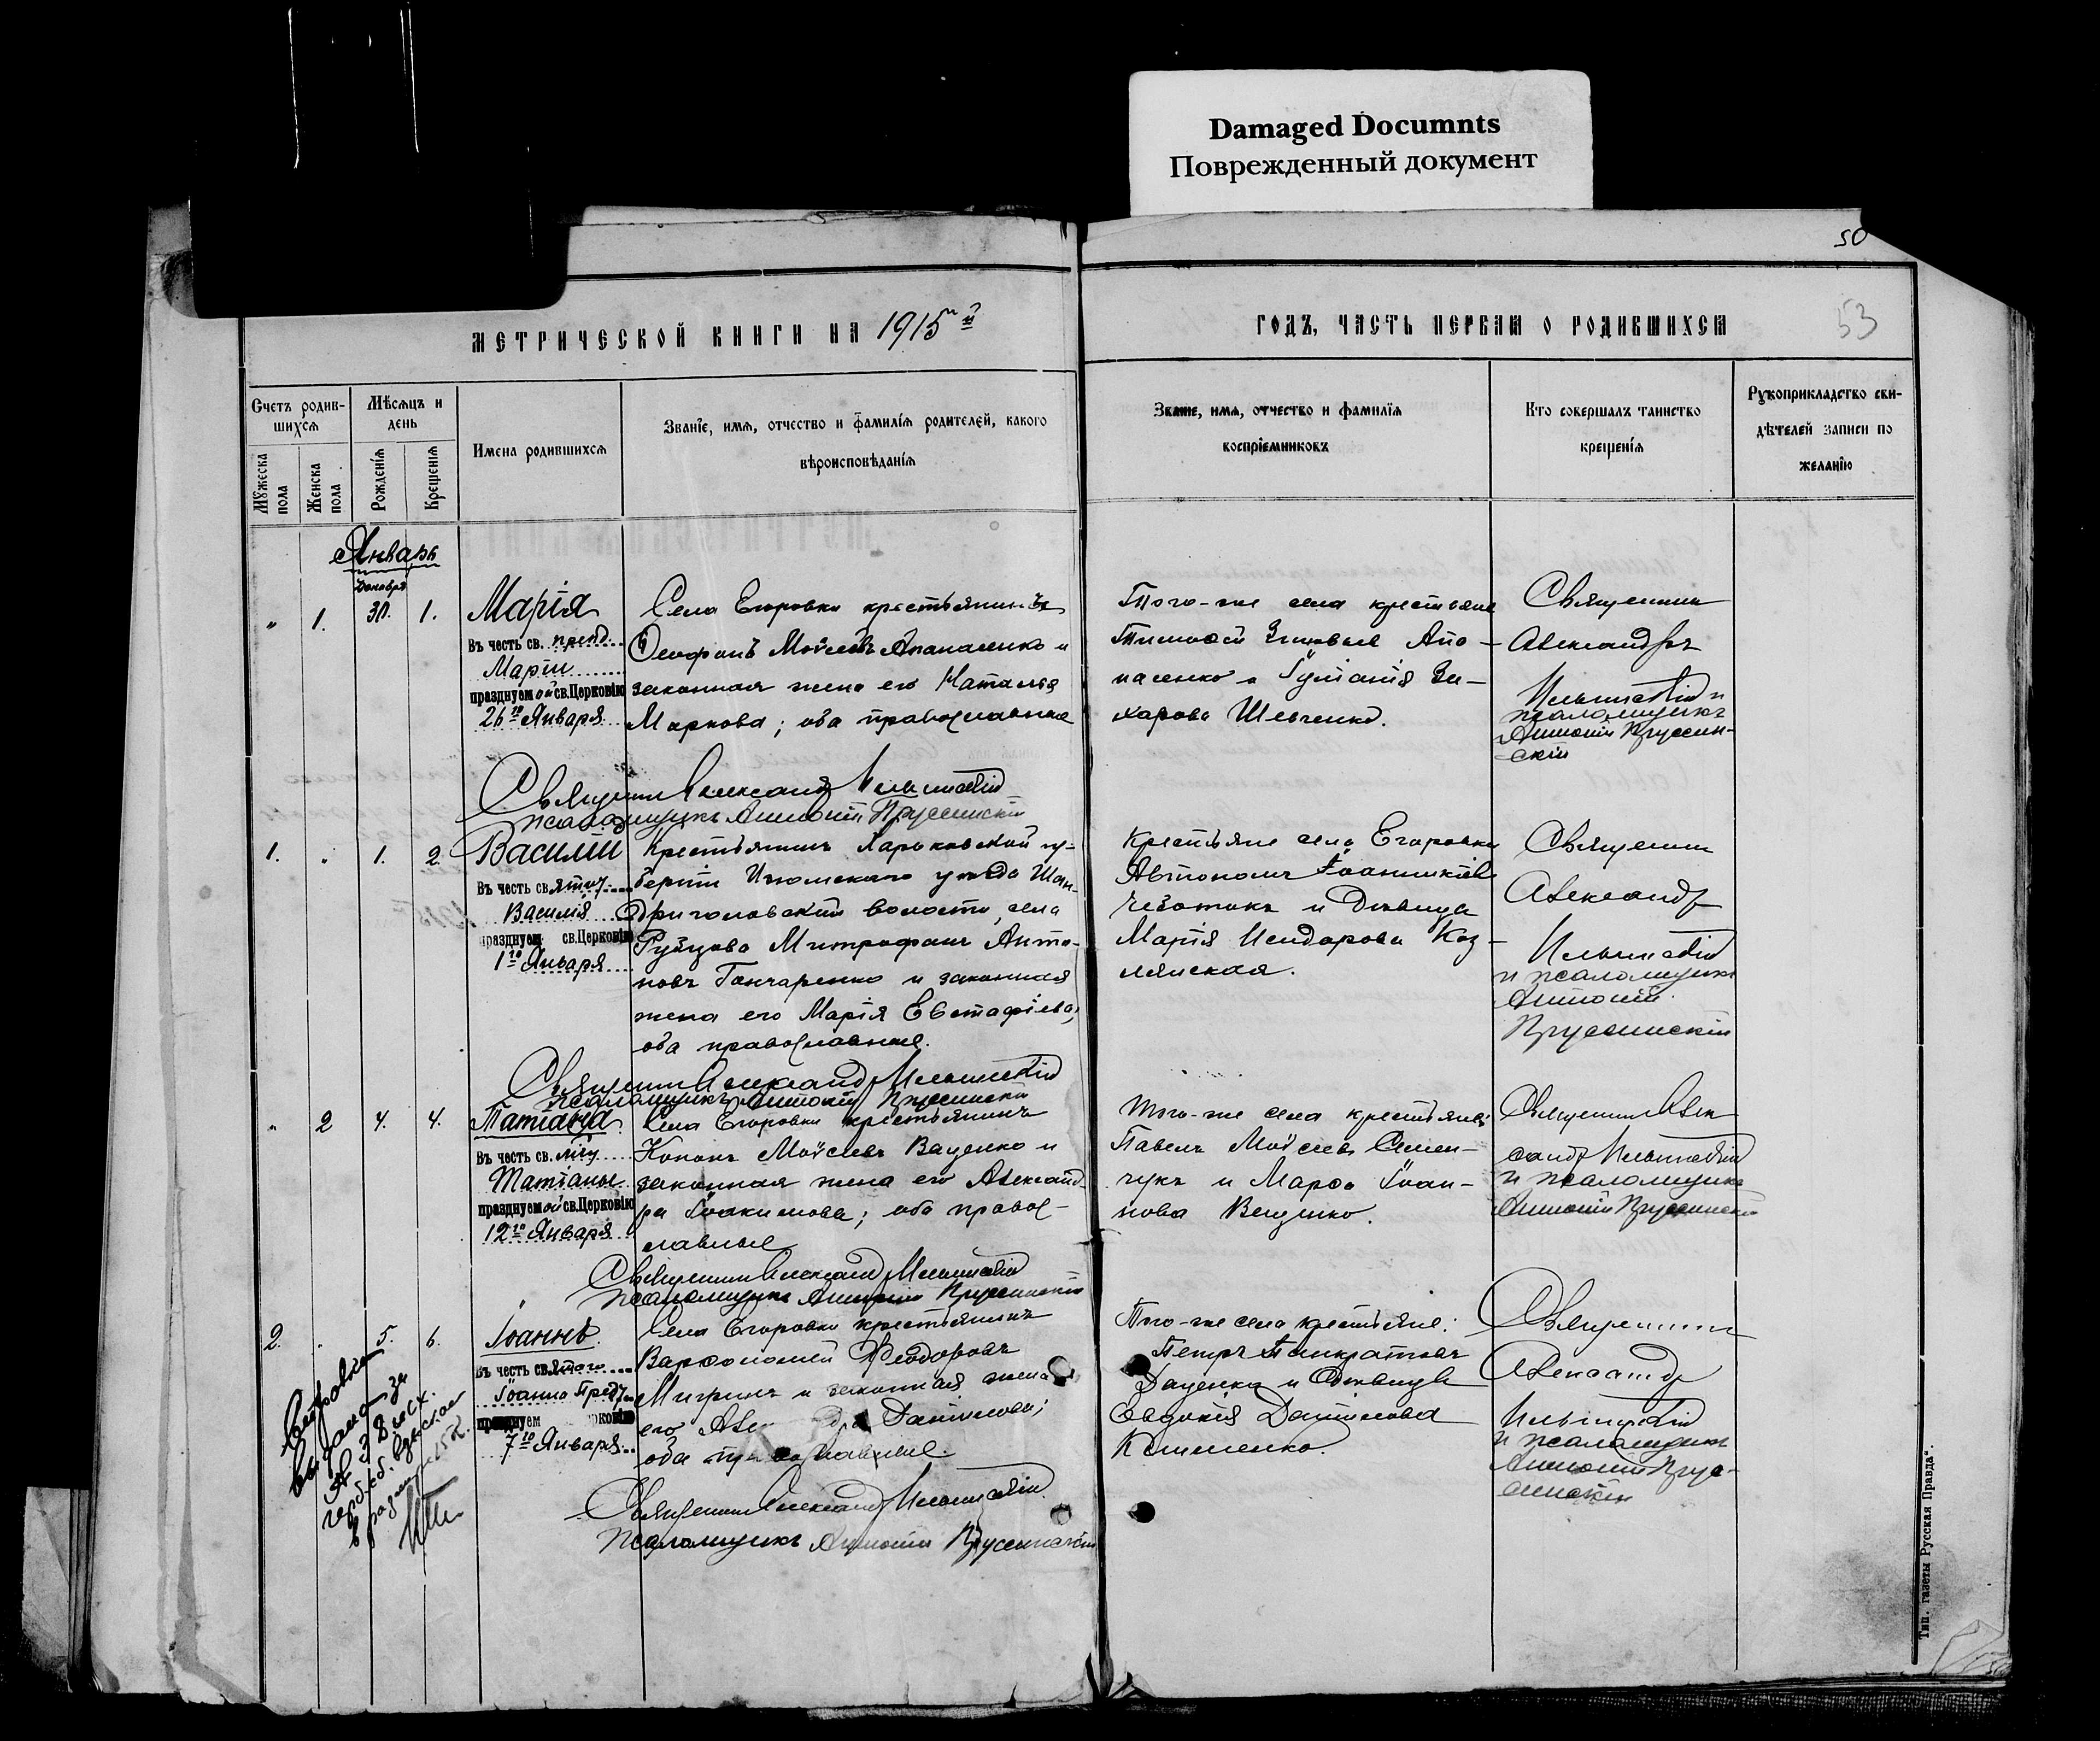 Damaged Documnts
Поврежденный документ
50
53
МЕТРИЧЕСКОЙ КНИГИ НА 1915
ГОДЪ, ЧАСТЬ ПЕРВАЯ О РОДИВШИХСЯ
Счетъ родив-
шихся
Мужеска
пола
Женска
пола
Мѣсяцъ и
день
Рожденія
Крещенія
Имена родившихся
Званіе, имя, отчество и фамилія родителей, какого
вѣроисповѣданія
Званіе, имя, отчество и фамилія
воспріемниковъ
Кто совершалъ таинство
крещенія
Рукоприкладство сви-
дѣтелей записи по
желанію
Январь
Декабря
" 1. 30. 1.
Марія
Въ честь св. преп.
Маріи
празднуемой св.Церковію
26го Января
Села Егоровки крестьянинъ
Ѳеофанъ Моѵсеевъ Апанасенко и
законная жена его Наталья
Маркова; оба православные
Того-же села крестьяне
Тимоѳей Зиновьев Апо-
насенко и Іуліанія За-
харова Шевченко.
Священникъ
Александръ
и
псаломщикъ
Антоній Прусин-
скій
Священникъ Александръ
псаломщикъ Антоній Прусинскій
1. " 1. 2.
Василій
Въ честь святого
Василія
празднуем св.Церковію
1го Января
Крестьянинъ Харьковской гу-
берніи Изюмскаго уѣзда Шан-
дриголовской волости, села
Рубцова Митрофанъ Анто-
новъ Гончаренко и законная
жена его Марія Евстафіева,
оба православные.
Крестьяне села Егоровки
Автономъ Іоанникіевъ
Чеботокъ и дѣвица
Марія Исидорова Коз-
лянская.
Священникъ
Александръ
и псаломщикъ
Антоній
Прусинскій
Священникъ Александръ
псаломщикъ Антоній Прусинскій
" 2 4. 4.
Татіана
Въ честь св. мцы
Татіаны
празднуемой св.Церковію
12го Января
Села Егоровки крестьянинъ
Кононъ Моѵсеевъ Ваценко и
законная жена его Александ-
ра Іоакимова; оба правос-
лавные
Того-же села крестьяне
Павелъ Моѵсеевъ Семен-
чукъ и Марѳа Іоан-
нова Ваценко.
Священникъ Алек
сандръ
и псаломщикъ
Антоній Прусинскій
Священникъ Александръ
псаломщикъ Антоній Прусинскій
2. " 5. 6.
Іоаннъ
Въ честь святого
Іоанна Предт.
празднуем
7го Января
Села Егоровки крестьянинъ
Варѳоломей Ѳеодоровъ
Мигринъ и законная жена
его Даніилова;
оба православные.
Того-же села крестьяне:
Петръ Панкратовъ
Даценко и дѣвица
Евдокія Даніилова
Клименко.
Священникъ
Александръ
и псаломщикъ
Антоній Прус-
инскій
Священникъ Александръ
Псаломщикъ Антоній Прусинскій
выдана за
№ 3
Тип. газеты Русская Правда".